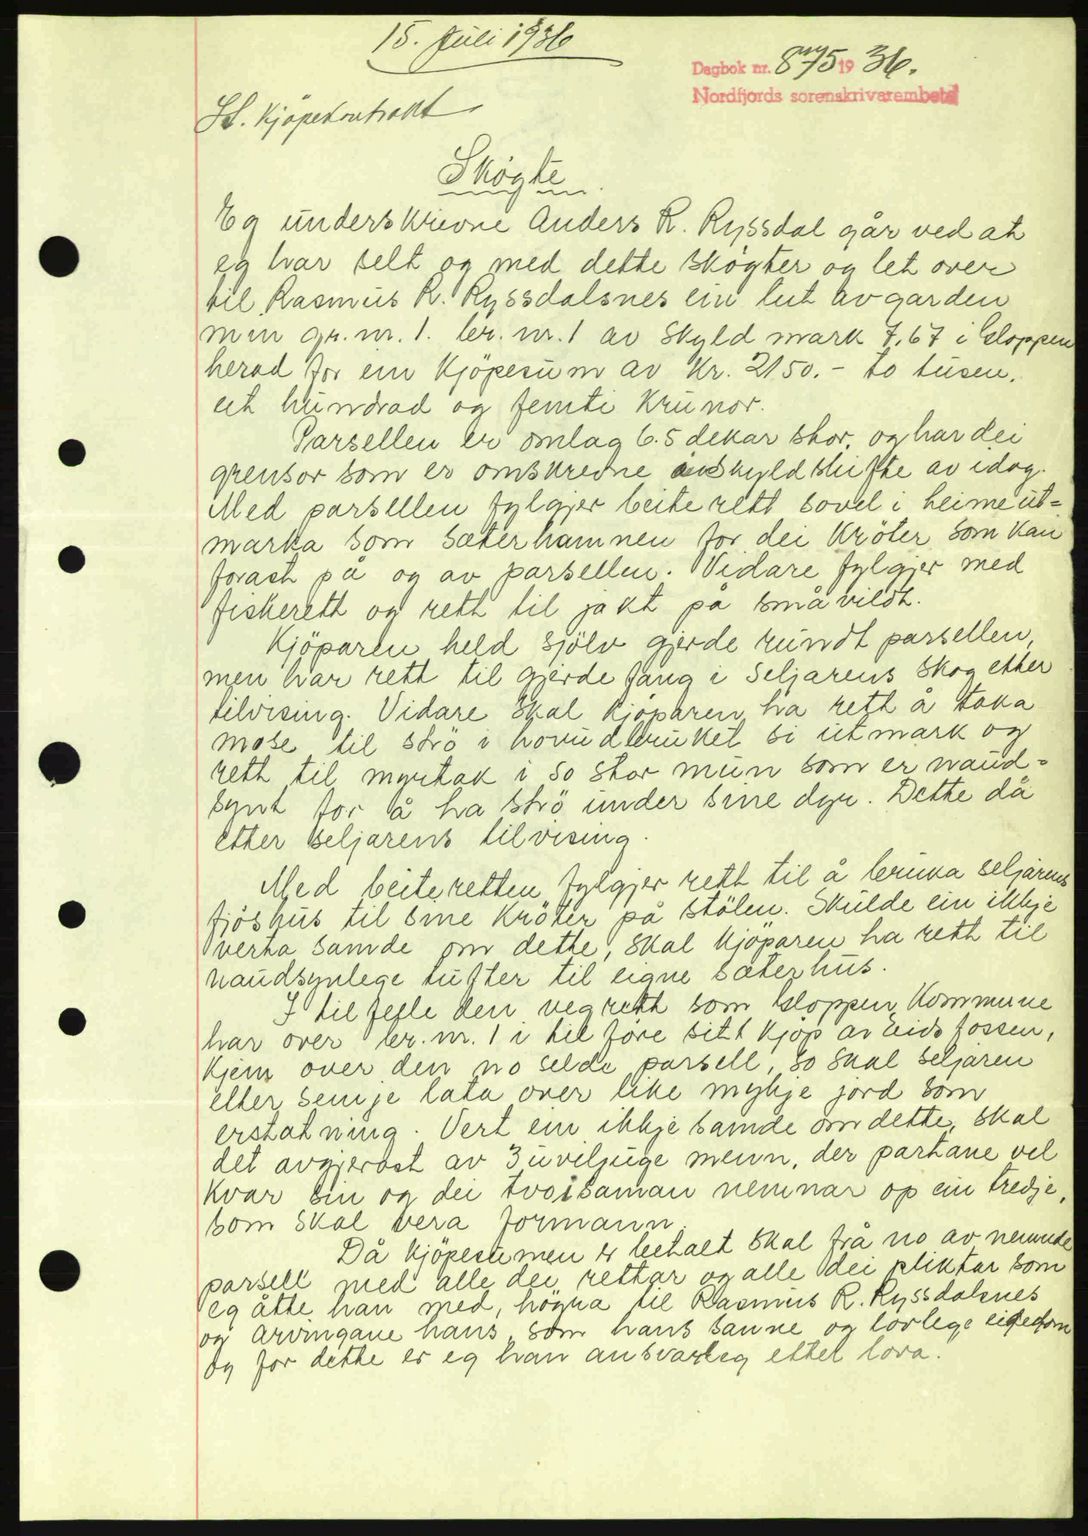 15. Juli 1936
Dagbok nr. 875 19 36.
Nordfjords sorenskrivarembete
St. Kjöpekontrakt
Skøyte
Eg underskrivne Anders R. Ryssdal går ved at
eg har selt og med dette skøyter og let over
til Rasmus R. Ryssdalsnes ein lut av garden
min gr. nr. 1. br. nr. 1 av skyld mark 7,67 i Gloppen
herad for ein Kjöpesum av Kr. 2150.- to tusen,
eit hundrad og femti Krunor.
Parsellen er omlag 6.5 dekar stor, og har dei
grensor som er omskrevne skyldskifte av idag.
Med parsellen fylgjer beiterett sovel i heimeut=
marka som sæterhamnen for dei Kröter som kan
forast på og av parsellen. Vidare fylgjer med
fiskerett og rett til jakt på småvildt.
Kjöparen held sjölv gjerde rundt parsellen,
men har rett til gjerdefang i Seljarens skog etter
tilvising. Vidare skal kjöparen ha rett å taka
mose til strö i hovudbruket si utmark og
rett til myrtak i so stor mun som er naud=
synt for å ha strö under sine dyr. Dette då
etter seljarens tilvising.
Med beiteretten fylgjer rett til å bruka seljarens
fjöshus til sine Kröter på stölen. Skulde ein ikkje
verta samde om dette, skal Kjöparen ha rett til
naudsynlege tufter til eigne sæterhus.
I tilfelle den vegrett som Gloppen Kommune
har over br. nr. 1 i tilföre sitt Kjöp av Eidsfossen,
Kjem over den no selde parsell, so skal seljaren
etter semje lata over like mykje jord som
erstatning. Vert ein ikkje samde om dette, skal
det avgjerast av 3 uviljuge menn, der partane vel
Kvar sin og dei tvo saman nemnar op ein tredje,
som skal vera formann.
Då Kjöpesumen er betalt skal frå no av nemnde
parsell med alle dei rettar og alle dei pliktar som
eg åtte han med, höyra til Rasmus R. Ryssdalsnes
og arvingane hans, som hans sanne og lovlege eigedom
og for dette er eg han ansvarleg etter lova.